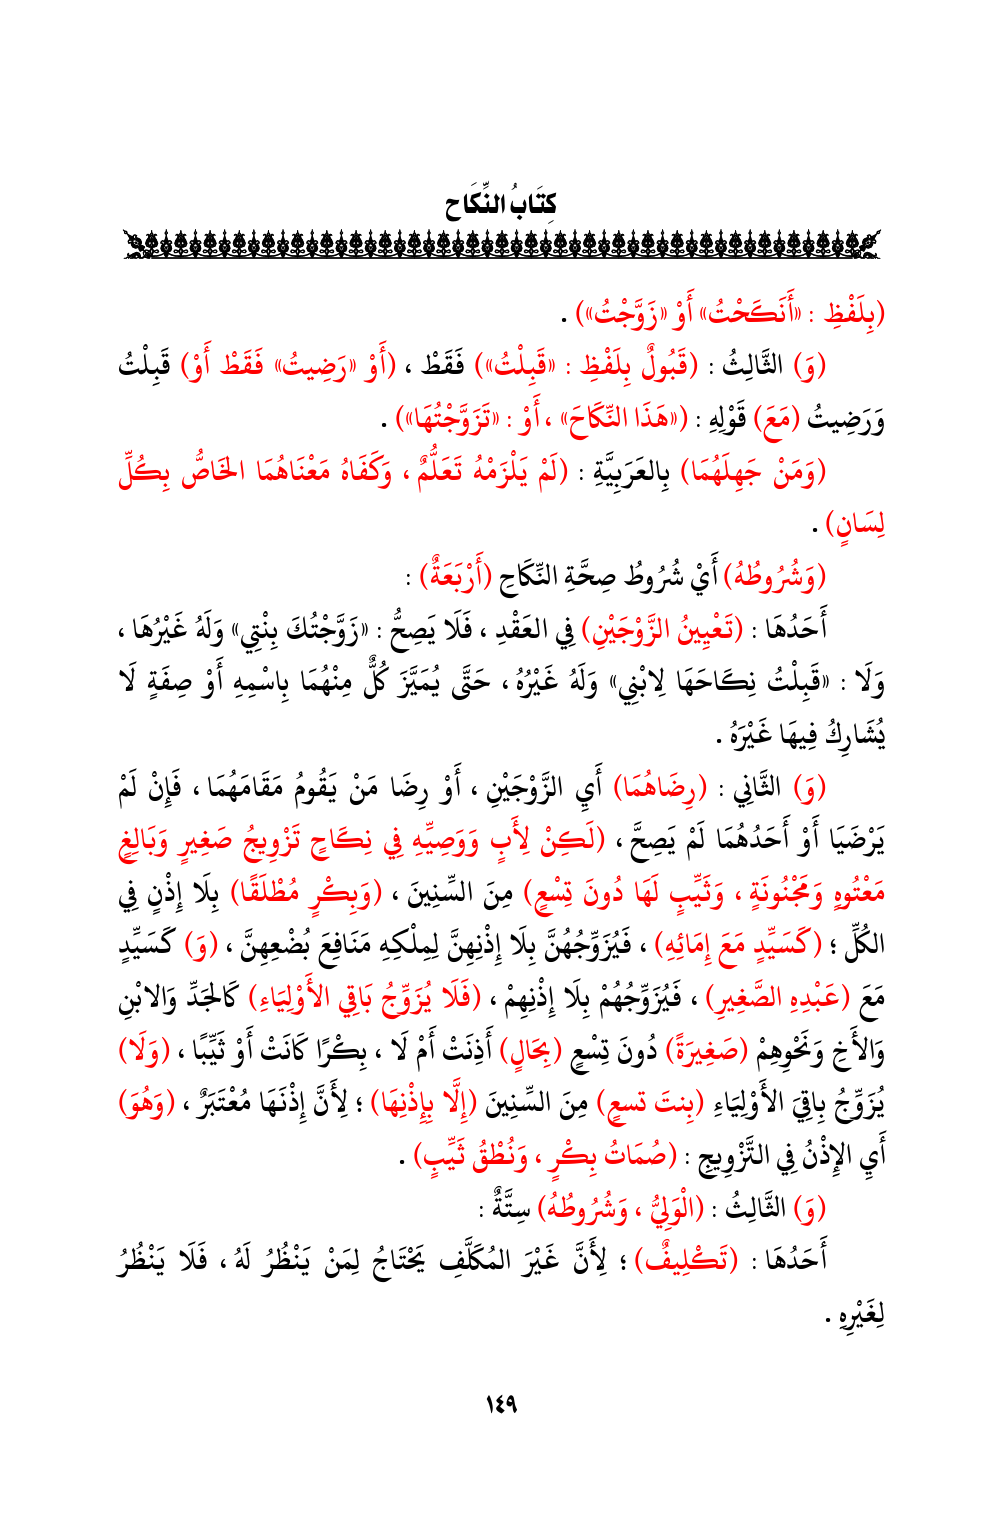 كِتَابُ النِّكَاح
(بِلَفْظِ : «أَنَكَحْتُ» أَوْ «زَوَّجْتُ») .
(وَ) الثَّالِثُ : (قَبُولٌ بِلَفْظِ : «قَبِلْتُ») فَقَطْ ، (أَوْ «رَضِيتُ» فَقَطْ أَوْ) قَبِلْتُ
وَرَضِيتُ (مَعَ) قَوْلِهِ : («هَذَا النِّكَاحَ» ، أَوْ : «تَزَوَّجْتُهَا») .
(وَمَنْ جَهِلَهُمَا) بِالعَرَبِيَّةِ : (لَمْ يَلْزَمْهُ تَعَلُّمٌ ، وَكَفَاهُ مَعْنَاهُمَا الخَاصُّ بِكُلِّ
لِسَانٍ) .
(وَشُرُوطُهُ) أَيْ شُرُوطُ صِحَّةِ النِّكَاحِ (أَرْبَعَةٌ) :
أَحَدُهَا : (تَعْيِينُ الزَّوْجَيْنِ) فِي العَقْدِ ، فَلَا يَصِحُّ : «زَوَّجْتُكَ بِنْتِي» وَلَهُ غَيْرُهَا ،
وَلَا : «قَبِلْتُ نِكَاحَهَا لِابْنِي» وَلَهُ غَيْرُهُ ، حَتَّى يُمَيَّزَ كُلٌّ مِنْهُمَا بِاسْمِهِ أَوْ صِفَةٍ لَا
يُشَارِكُ فِيهَا غَيْرَهُ .
(وَ) الثَّانِي : (رِضَاهُمَا) أَيِ الزَّوْجَيْنِ ، أَوْ رِضَا مَنْ يَقُومُ مَقَامَهُمَا ، فَإِنْ لَمْ
يَرْضَيَا أَوْ أَحَدُهُمَا لَمْ يَصِحَّ ، (لَكِنْ لِأَبٍ وَوَصِيِّهِ فِي نِكَاحٍ تَزْوِيجُ صَغِيرٍ وَبَالِغٍ
مَعْتُوهٍ وَمَجْنُونَةٍ ، وَثَيِّبٍ لَهَا دُونَ تِسْعٍ) مِنَ السِّنِينَ ، (وَبِكْرٍ مُطْلَقًا) بِلَا إِذْنٍ فِي
الكُلِّ ؛ (كَسَيِّدٍ مَعَ إِمَائِهِ) ، فَيُزَوِّجُهُنَّ بِلَا إِذْنِهِنَّ لِمِلْكِهِ مَنَافِعَ بُضْعِهِنَّ ، (وَ) كَسَيِّدٍ
مَعَ (عَبْدِهِ الصَّغِيرِ) ، فَيُزَوِّجُهُمْ بِلَا إِذْنِهِمْ ، (فَلَا يُزَوِّجُ بَاقِي الأَوْلِيَاءِ) كَالجَدِّ وَالابْنِ
وَالأَخِ وَنَحْوِهِمْ (صَغِيرَةً) دُونَ تِسْعٍ (بِحَالٍ) أَذِنَتْ أَمْ لَا ، بِكْرًا كَانَتْ أَوْ ثَيِّبًا ، (وَلَا)
يُزَوِّجُ بِاقِيَ الأَوْلِيَاءِ (بِنتَ تسعٍ) مِنَ السِّنِينَ (إِلَّا بِإِذْنِهَا) ؛ لِأَنَّ إِذْنَهَا مُعْتَبَرٌ ، (وَهُوَ)
أَيِ الإِذْنُ فِي التَّزْوِيجِ : (صُمَاتُ بِكْرٍ ، وَنُطْقُ ثَيِّبٍ) .
(وَ) الثَّالِثُ : (الْوَلِيُّ ، وَشُرُوطُهُ) سِتَّةٌ :
أَحَدُهَا : (تَكْلِيفٌ) ؛ لِأَنَّ غَيْرَ المُكَلَّفِ يَحْتَاجُ لِمَنْ يَنْظُرُ لَهُ ، فَلَا يَنْظُرُ
لِغَيْرِهِ .
١٤٩